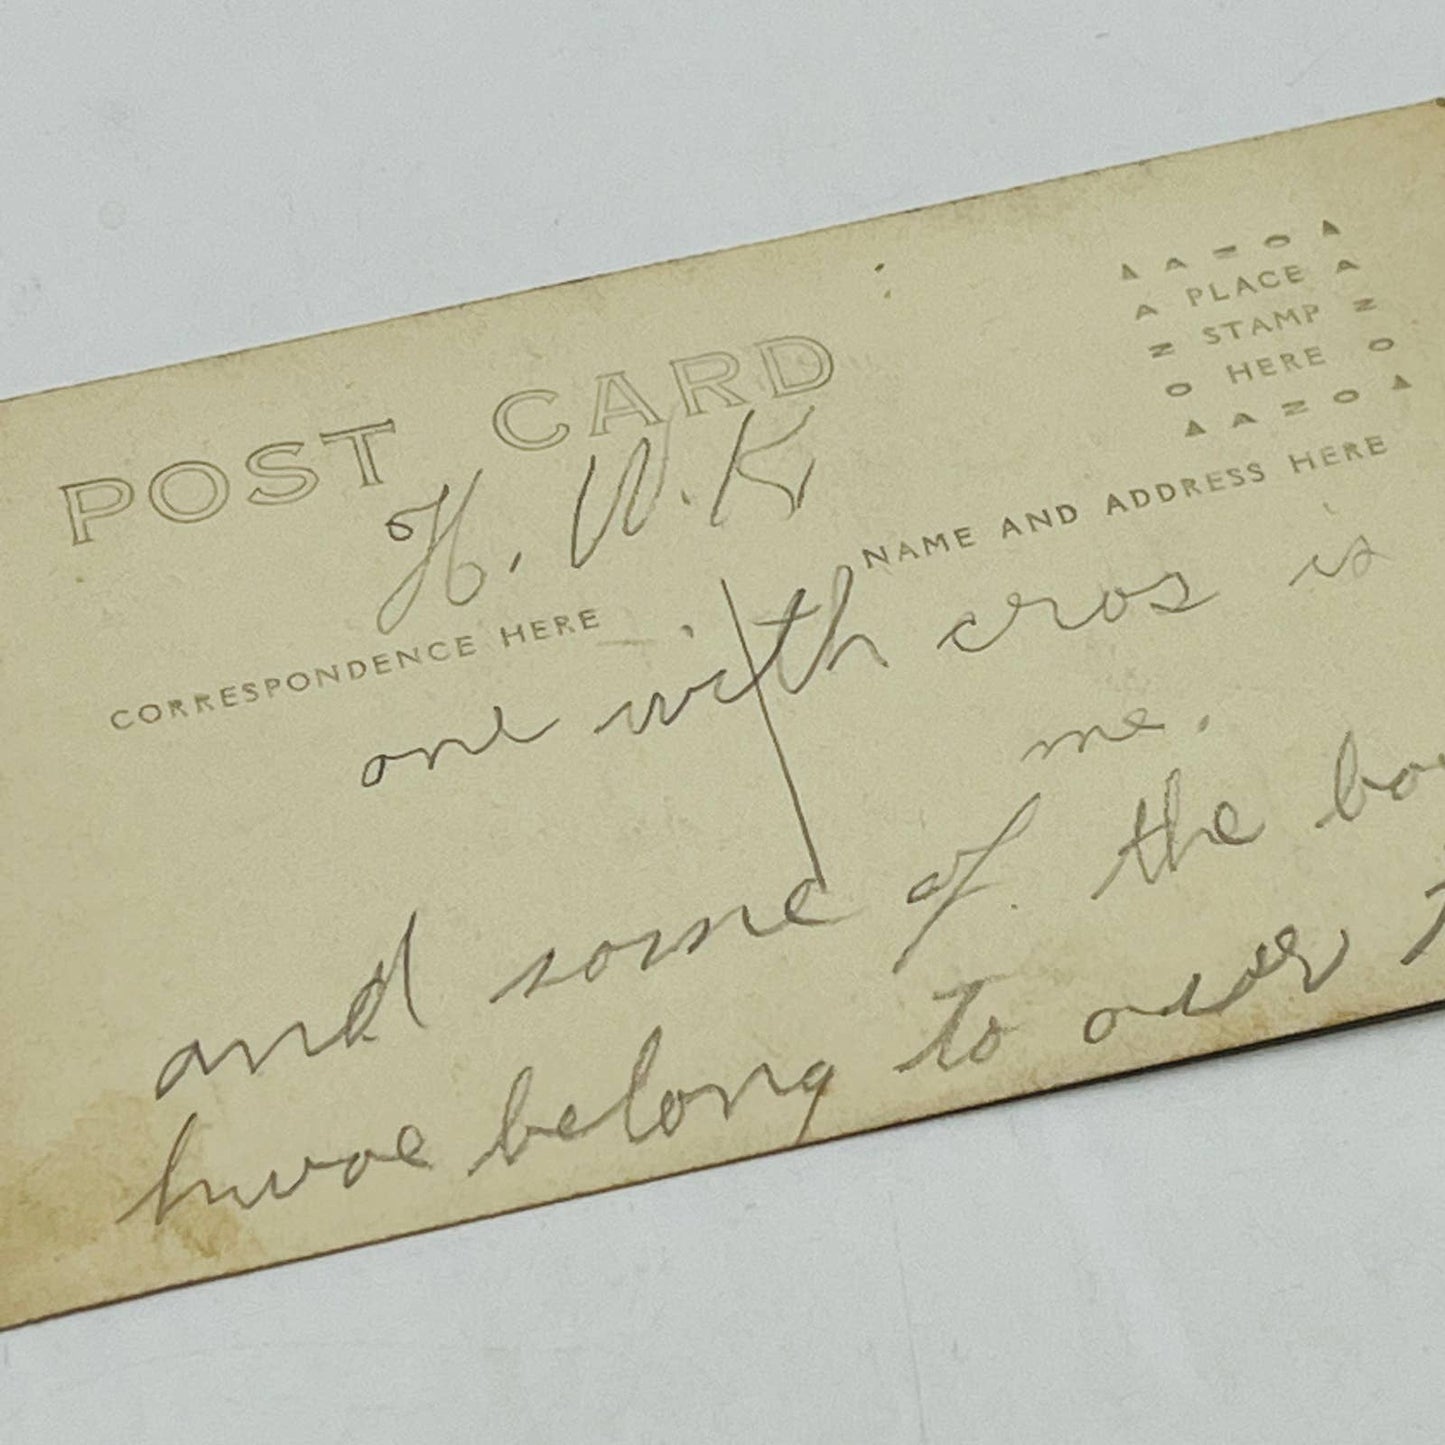 POST CARD
H. W. K
CORRESPONDENCE HERE
A A N O A
A PLACE A
N STAMP N
O HERE O
A A N O A
NAME AND ADDRESS HERE
one with cros is
me.
and some of the
belong to